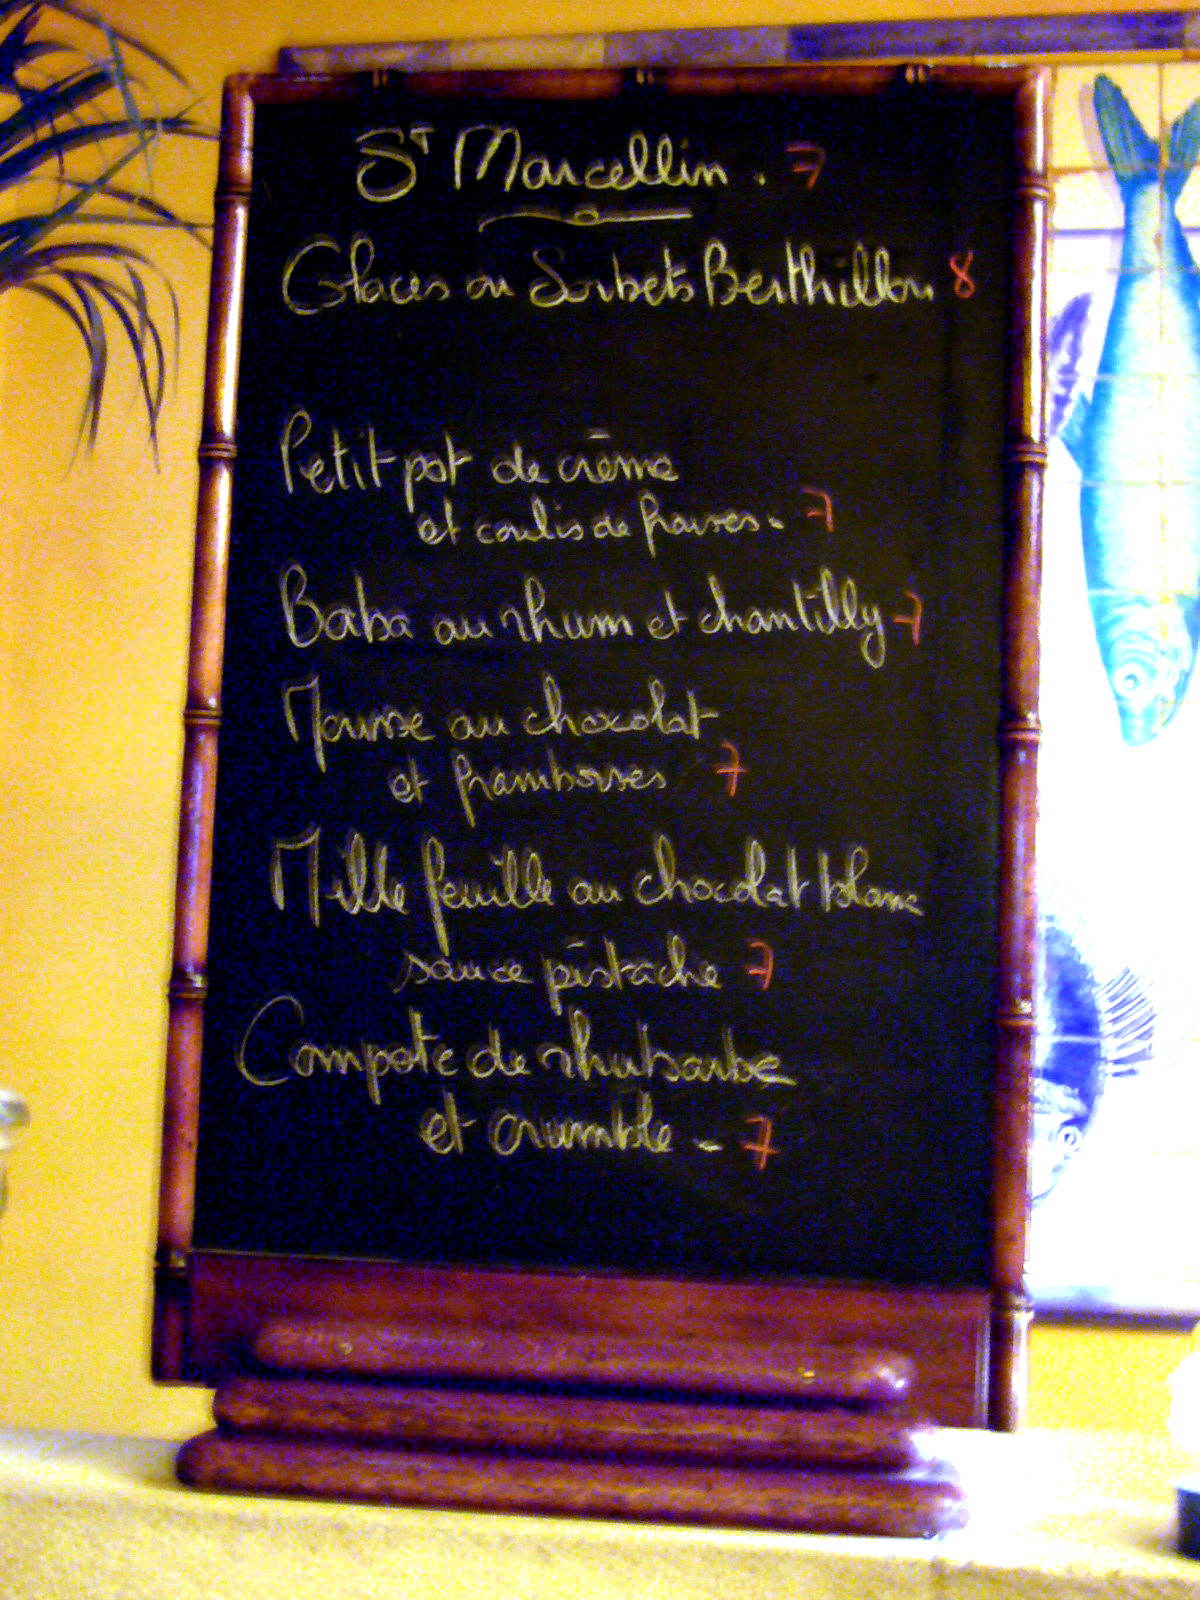 St Marcellin. 7
Glaces ou Sorbets Berthillon 8
Petit pot de crème
et coulis de fraises. 7
Baba au rhum et chantilly 7
Mousse au chocolat
et framboises 7
Mille feuille au chocolat blanc
sauce pistache 7
Compote de rhubarbe
et crumble - 7